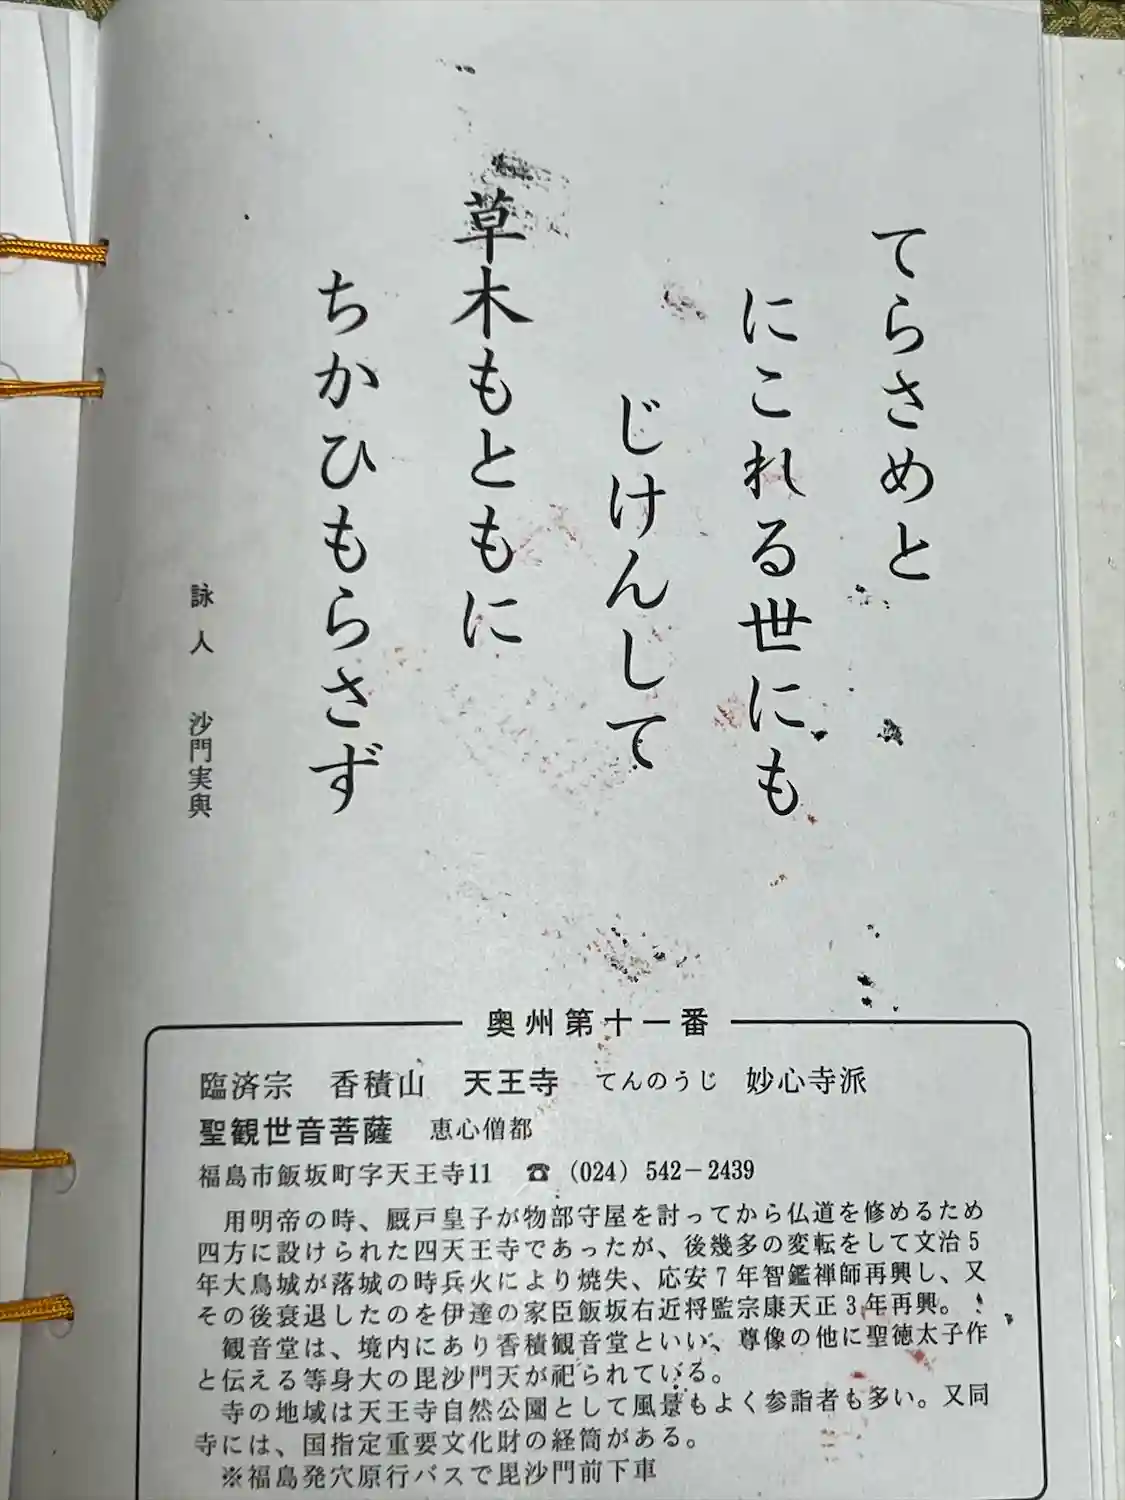 てらさめと
にこれる世にも
じけんして
草木もともに
ちかひもらさず
詠人　沙門実興
奥州第十一番
臨済宗　香積山　天王寺　てんのうじ　妙心寺派
聖観世音菩薩　恵心僧都
福島市飯坂町字天王寺11　☎（024）542－2439
用明帝の時、厩戸皇子が物部守屋を討ってから仏道を修めるため
四方に設けられた四天王寺であったが、後幾多の変転をして文治5
年大鳥城が落城の時兵火により焼失、応安7年智鑑禅師再興し、又
その後衰退したのを伊達の家臣飯坂右近将監宗康天正3年再興。
観音堂は、境内にあり香積観音堂といい、尊像の他に聖徳太子作
と伝える等身大の毘沙門天が祀られている。
寺の地域は天王寺自然公園として風景もよく参詣者も多い。又同
寺には、国指定重要文化財の経筒がある。
※福島発穴原行バスで毘沙門前下車